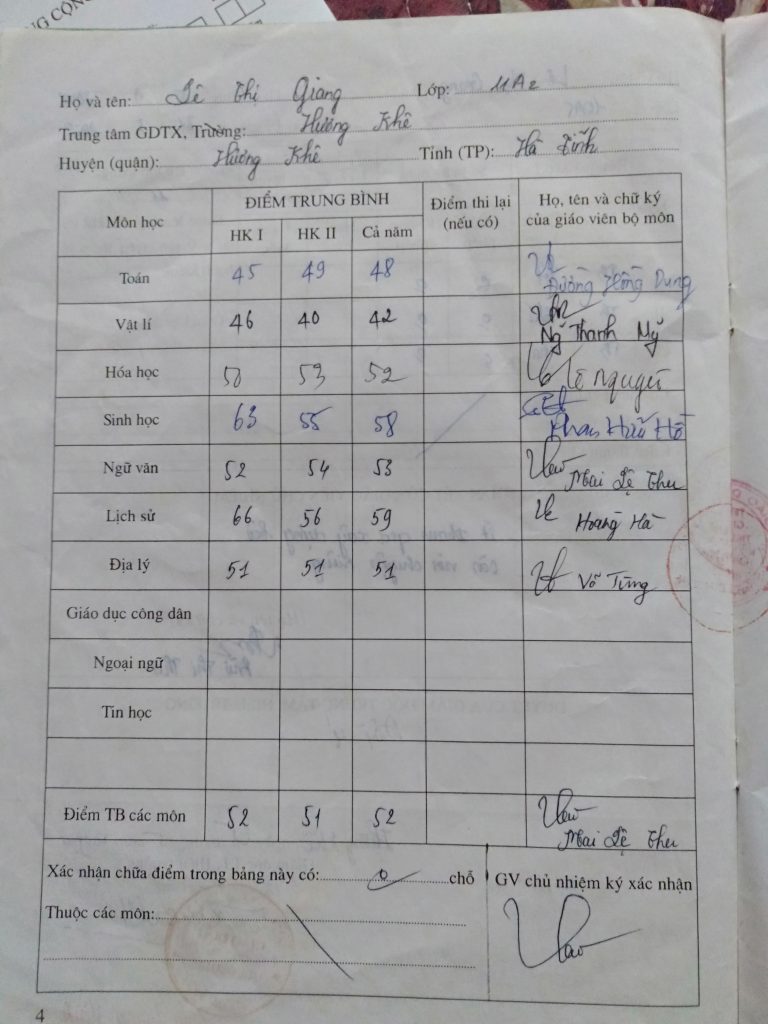 NG CỘN
Họ và tên: Lê Thị Giang Lớp: 11A2
Trung tâm GDTX, Trường: Hương Khê
Huyện (quận): Hương Khê Tỉnh (TP): Hà Tĩnh
Môn học ĐIỂM TRUNG BÌNH Điểm thi lại (nếu có) Họ, tên và chữ ký của giáo viên bộ môn
HK I HK II Cả năm
Toán 45 49 48 Đường Hồng Dung
Vật lí 46 40 42 Ng Thanh Mỹ
Hóa học 50 53 52 Lê Nguyệt
Sinh học 63 55 58 Phan Hữu Hồ
Ngữ văn 52 54 53 Mai Lệ Thu
Lịch sử 66 56 59 Hoàng Hà
Địa lý 51 51 51 Võ Tùng
Giáo dục công dân
Ngoại ngữ
Tin học
Điểm TB các môn 52 51 52 Mai Lệ Thu
Xác nhận chữa điểm trong bảng này có: 0 chỗ GV chủ nhiệm ký xác nhận
Thuộc các môn:
4